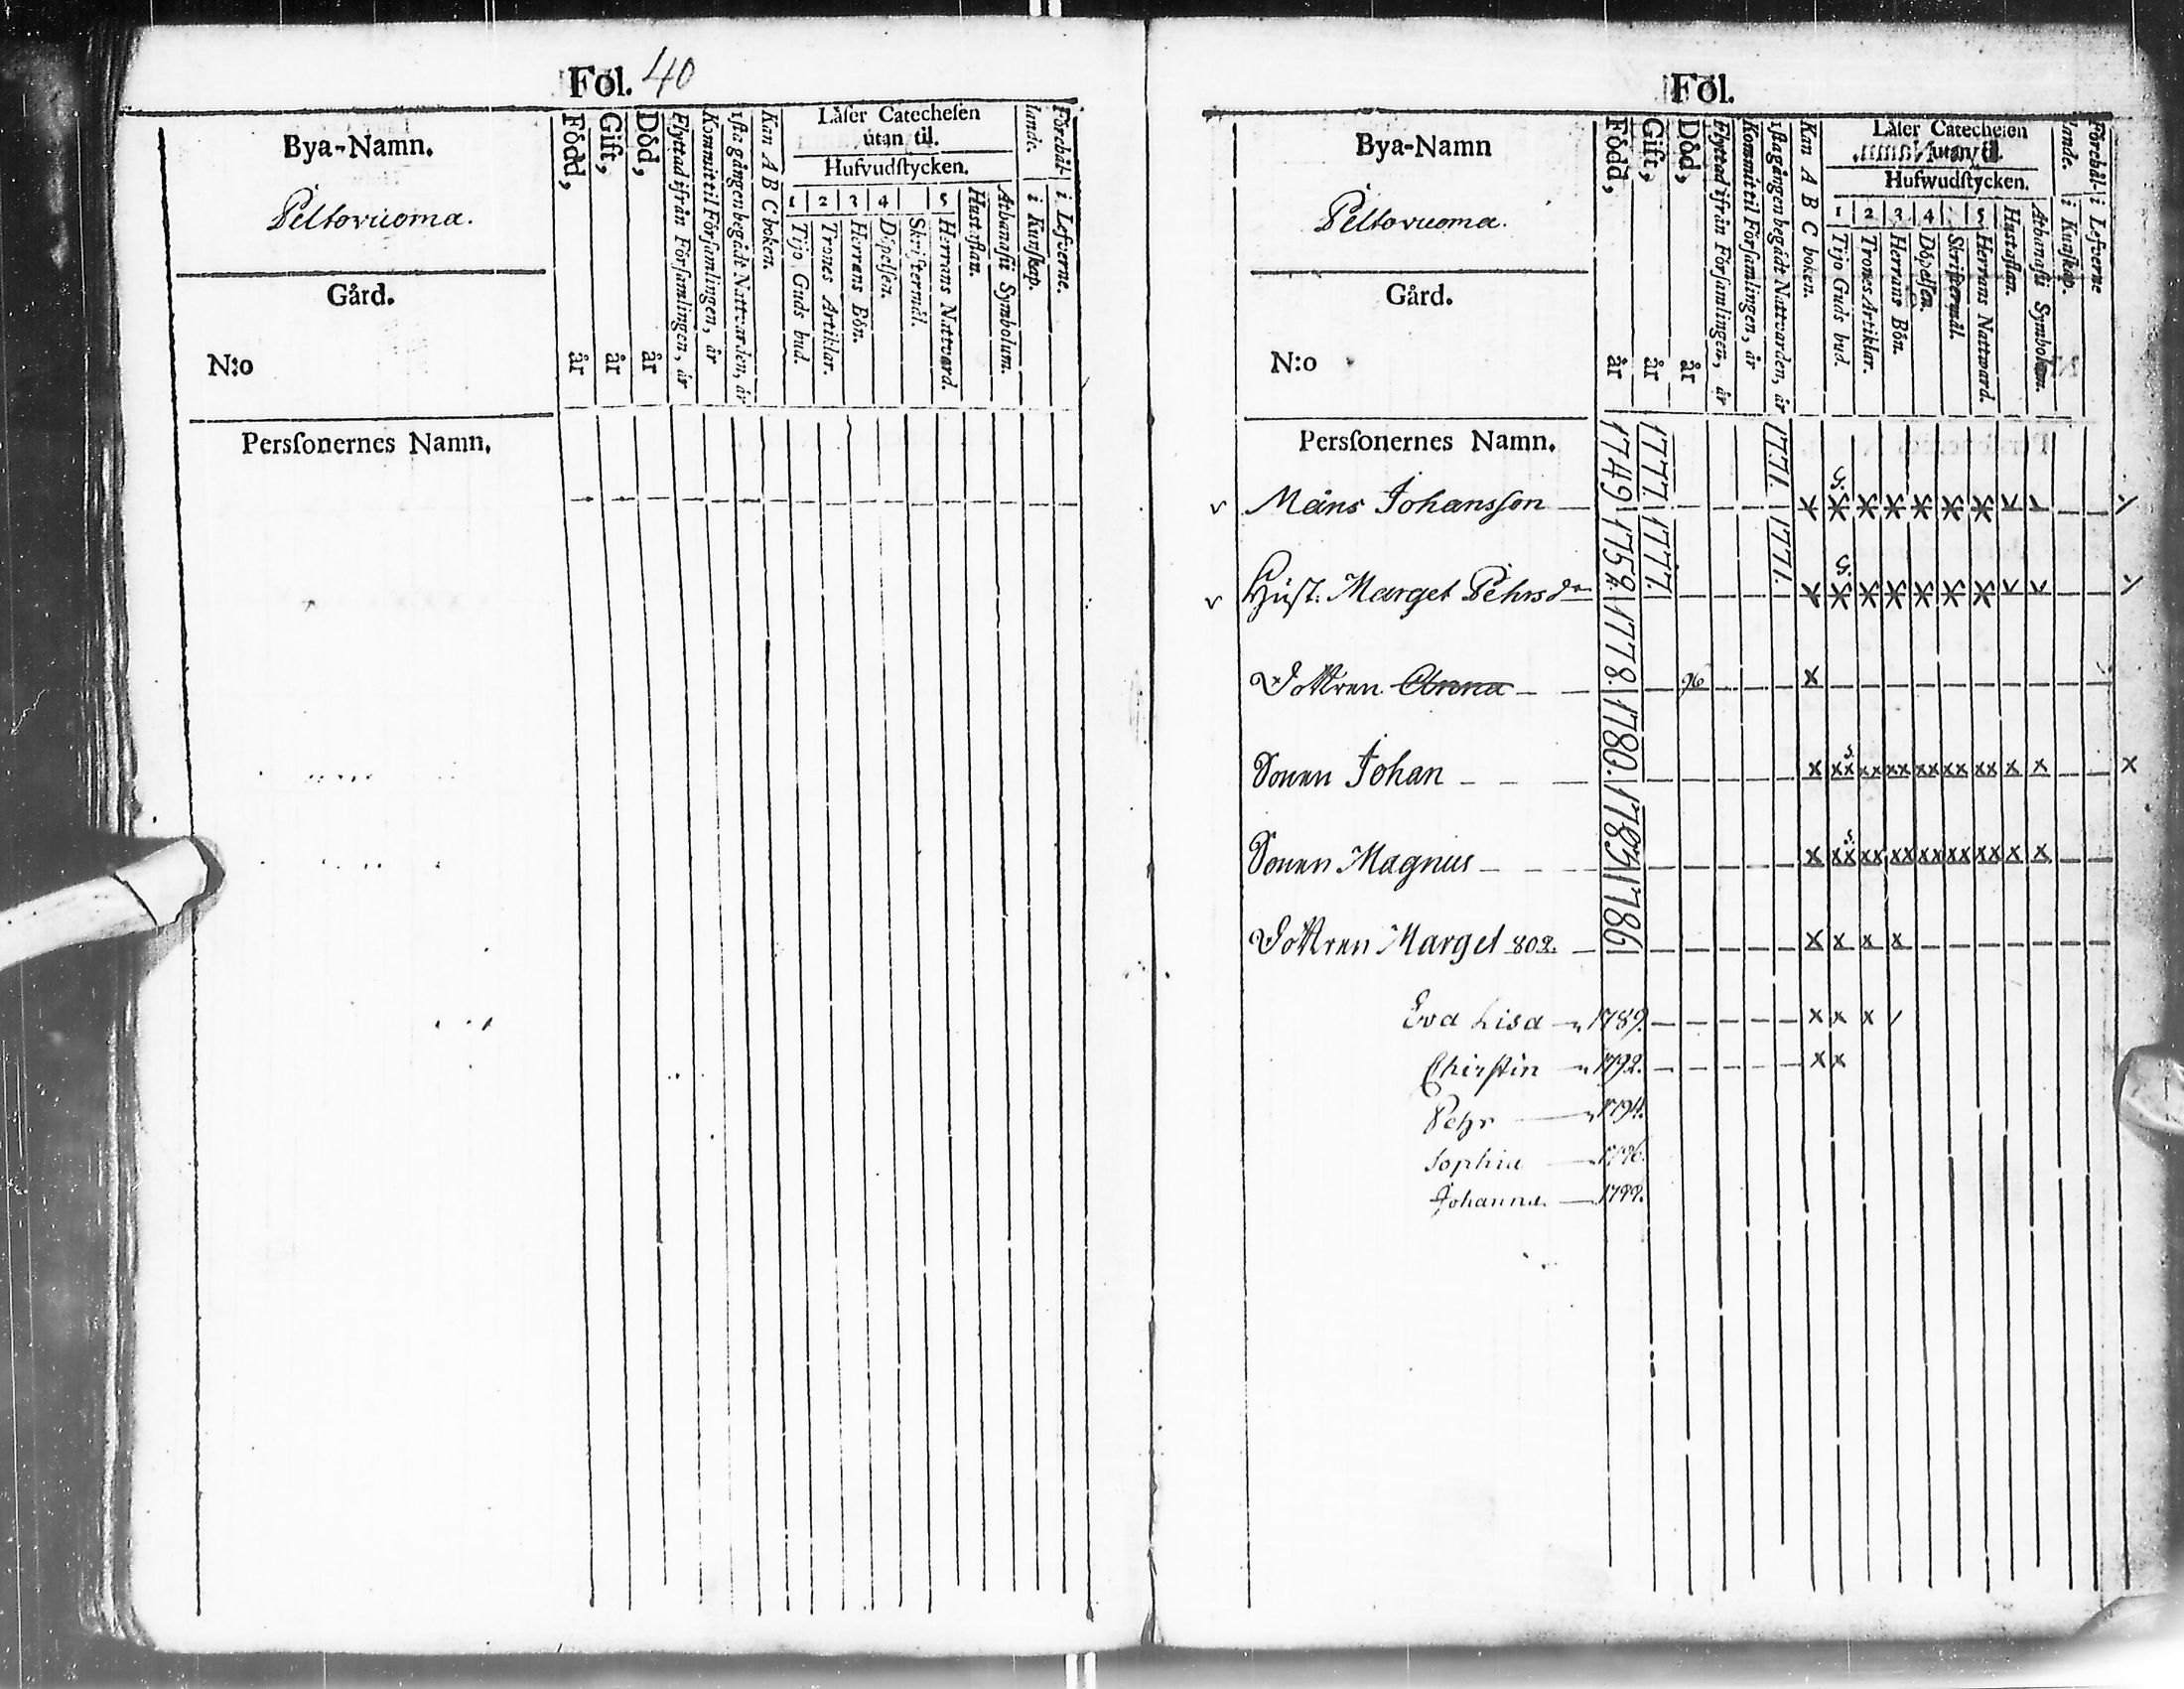 Fol. 40
Bya-Namn.
Peltovuoma.
Gård.
N:o
Persſonernes Namn.
Född, år
Gift, år
Död, år
Flyttad ifrån Förſamlingen, år
Kommit til Förſamlingen, år
1ſta gången begådt Nattvarden, år
Kan A B C boken.
Läſer Catecheſen
utan til.
Hufvudſtycken.
1 2 3 4 5
Tijo Guds bud.
Trones Artiklar.
Herrans Bön.
Döpelſen.
Skriftermål.
Herrans Nattvard.
Huſtaflan.
Athanaſii Symbolum.
Förehållande.
i Kunſkap.
i Lefverne.
Fol.
Bya-Namn
Peltovuoma.
Gård.
N:o
Persſonernes Namn.
Född, år
Gift, år
Död, år
Flyttad ifrån Förſamlingen, år
Kommit til Förſamlingen, år
1ſta gången begådt Nattvarden, år
Kan A B C boken.
Läſer Catecheſen
utan til.
Hufwudſtycken.
1 2 3 4 5
Tijo Guds bud.
Trones Artiklar.
Herrans Bön.
Döpelſen.
Skriftermål.
Herrans Nattward.
Huſtaflan.
Athanaſii Symbolum.
Förehållande.
i Kunſkap.
i Lefverne
v Måns Johansſon 1749 1777. 1771.
v Huſt. Marget Pehrsdr 1759. 1777. 1771.
Dottren Anna 1778. 96 x
Sonen Johan 1780. x xx xx xx xx xx xx x x x
Sonen Magnus x xx xx xx xx xx xx x x
Dottren Marget 802. 1786 x x x x
Eva Lisa 1789. x x x /
Chirſtin 1792. x x
Pehr 1794.
Sophia 1796.
Johanna 1799.